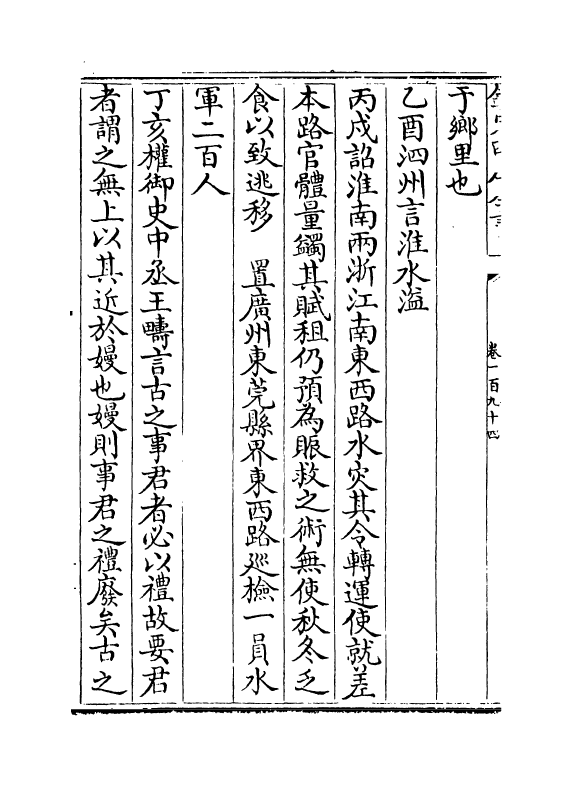 卷一百九十四
于鄉里也
乙酉泗州言淮水溢
丙戍詔淮南兩浙江南東西路水灾其令轉運使就差
本路官體量蠲其賦租仍預為賑救之術無使秋冬乏
食以致逃移　置廣州東莞縣界東西路巡檢一員水
軍二百人
丁亥權御史中丞王疇言古之事君者必以禮故要君
者謂之無上以其近於嫚也嫚則事君之禮廢矣古之